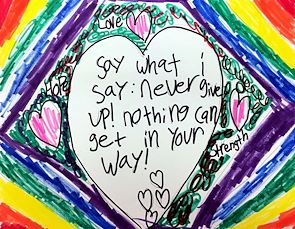 Love
Hope
say what i
say: never give
up! nothing can
get in your
way!
Strength